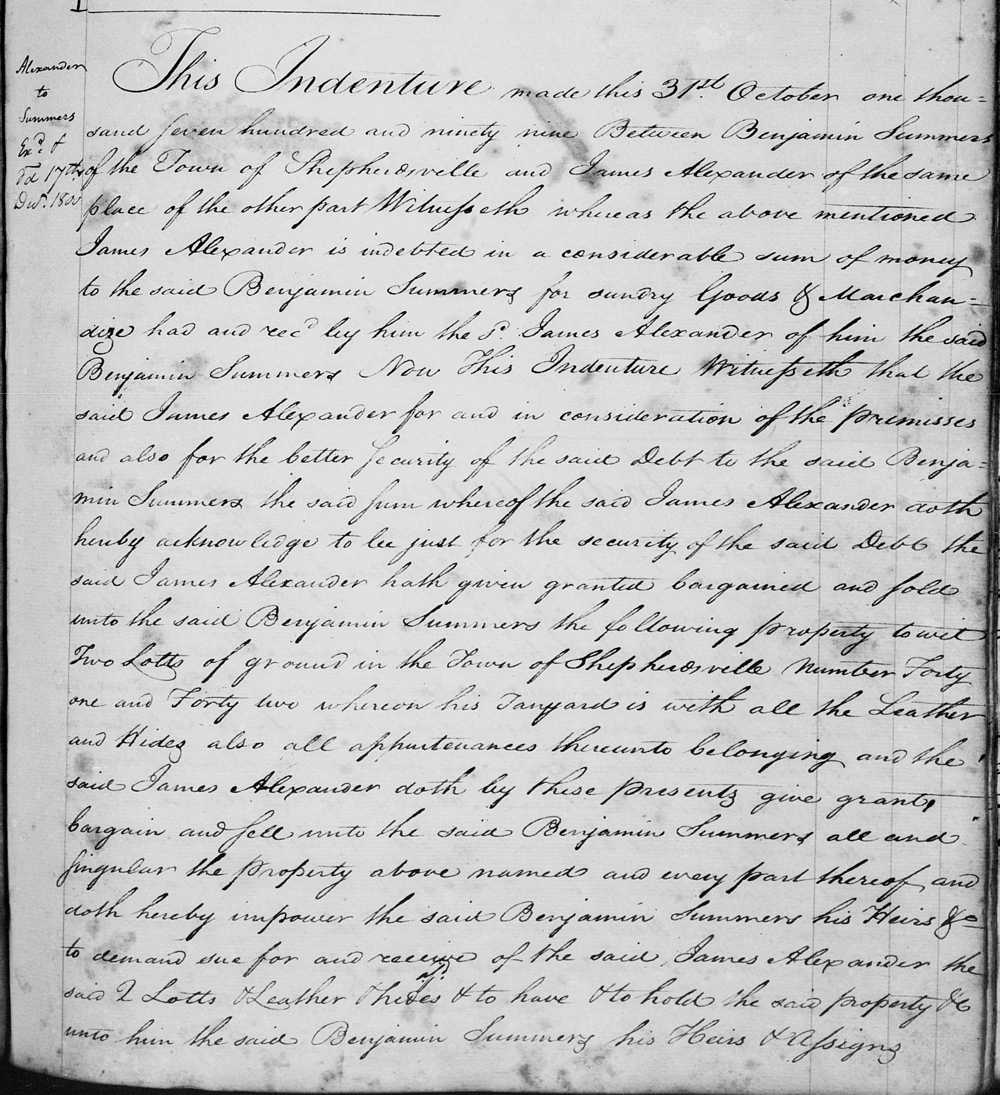 Alexander
to
Summers
Exd. &
Fd. 17th
Decr. 180
This Indenture made this 31st. October one thou-
sand seven hundred and ninety nine Between Benjamin Summers
of the Town of Shepherdsville and James Alexander of the same
place of the other part Witnesseth whereas the above mentioned
James Alexander is indebted in a considerable sum of money
to the said Benjamin Summers for sundry Goods & Marchan-
dize had and recd by him the sd. James Alexander of him the said
Benjamin Summers Now This Indenture Witnesseth that the
said James Alexander for and in consideration of the premisses
and also for the better security of the said Debt to the said Benja-
min Summers the said sum whereof the said James Alexander doth
hereby acknowledge to be just for the security of the said Debt the
said James Alexander hath given granted bargained and sold
unto the said Benjamin Summers the following property to wit
Two Lotts of ground in the Town of Shepherdsville Number Forty
one and Forty two whereon his Tanyard is with all the Leather
and Hides also all appurtenances thereunto belonging and the
said James Alexander doth by these presents give grant,
bargain and sell unto the said Benjamin Summers all and
singular the property above named and every part thereof and
doth hereby impower the said Benjamin Summers his Heirs &c
to demand sue for and receive of the said James Alexander the
said 2 Lotts & Leather & hides & to have & to hold the said property &c
unto him the said Benjamin Summers his Heirs & Assigns